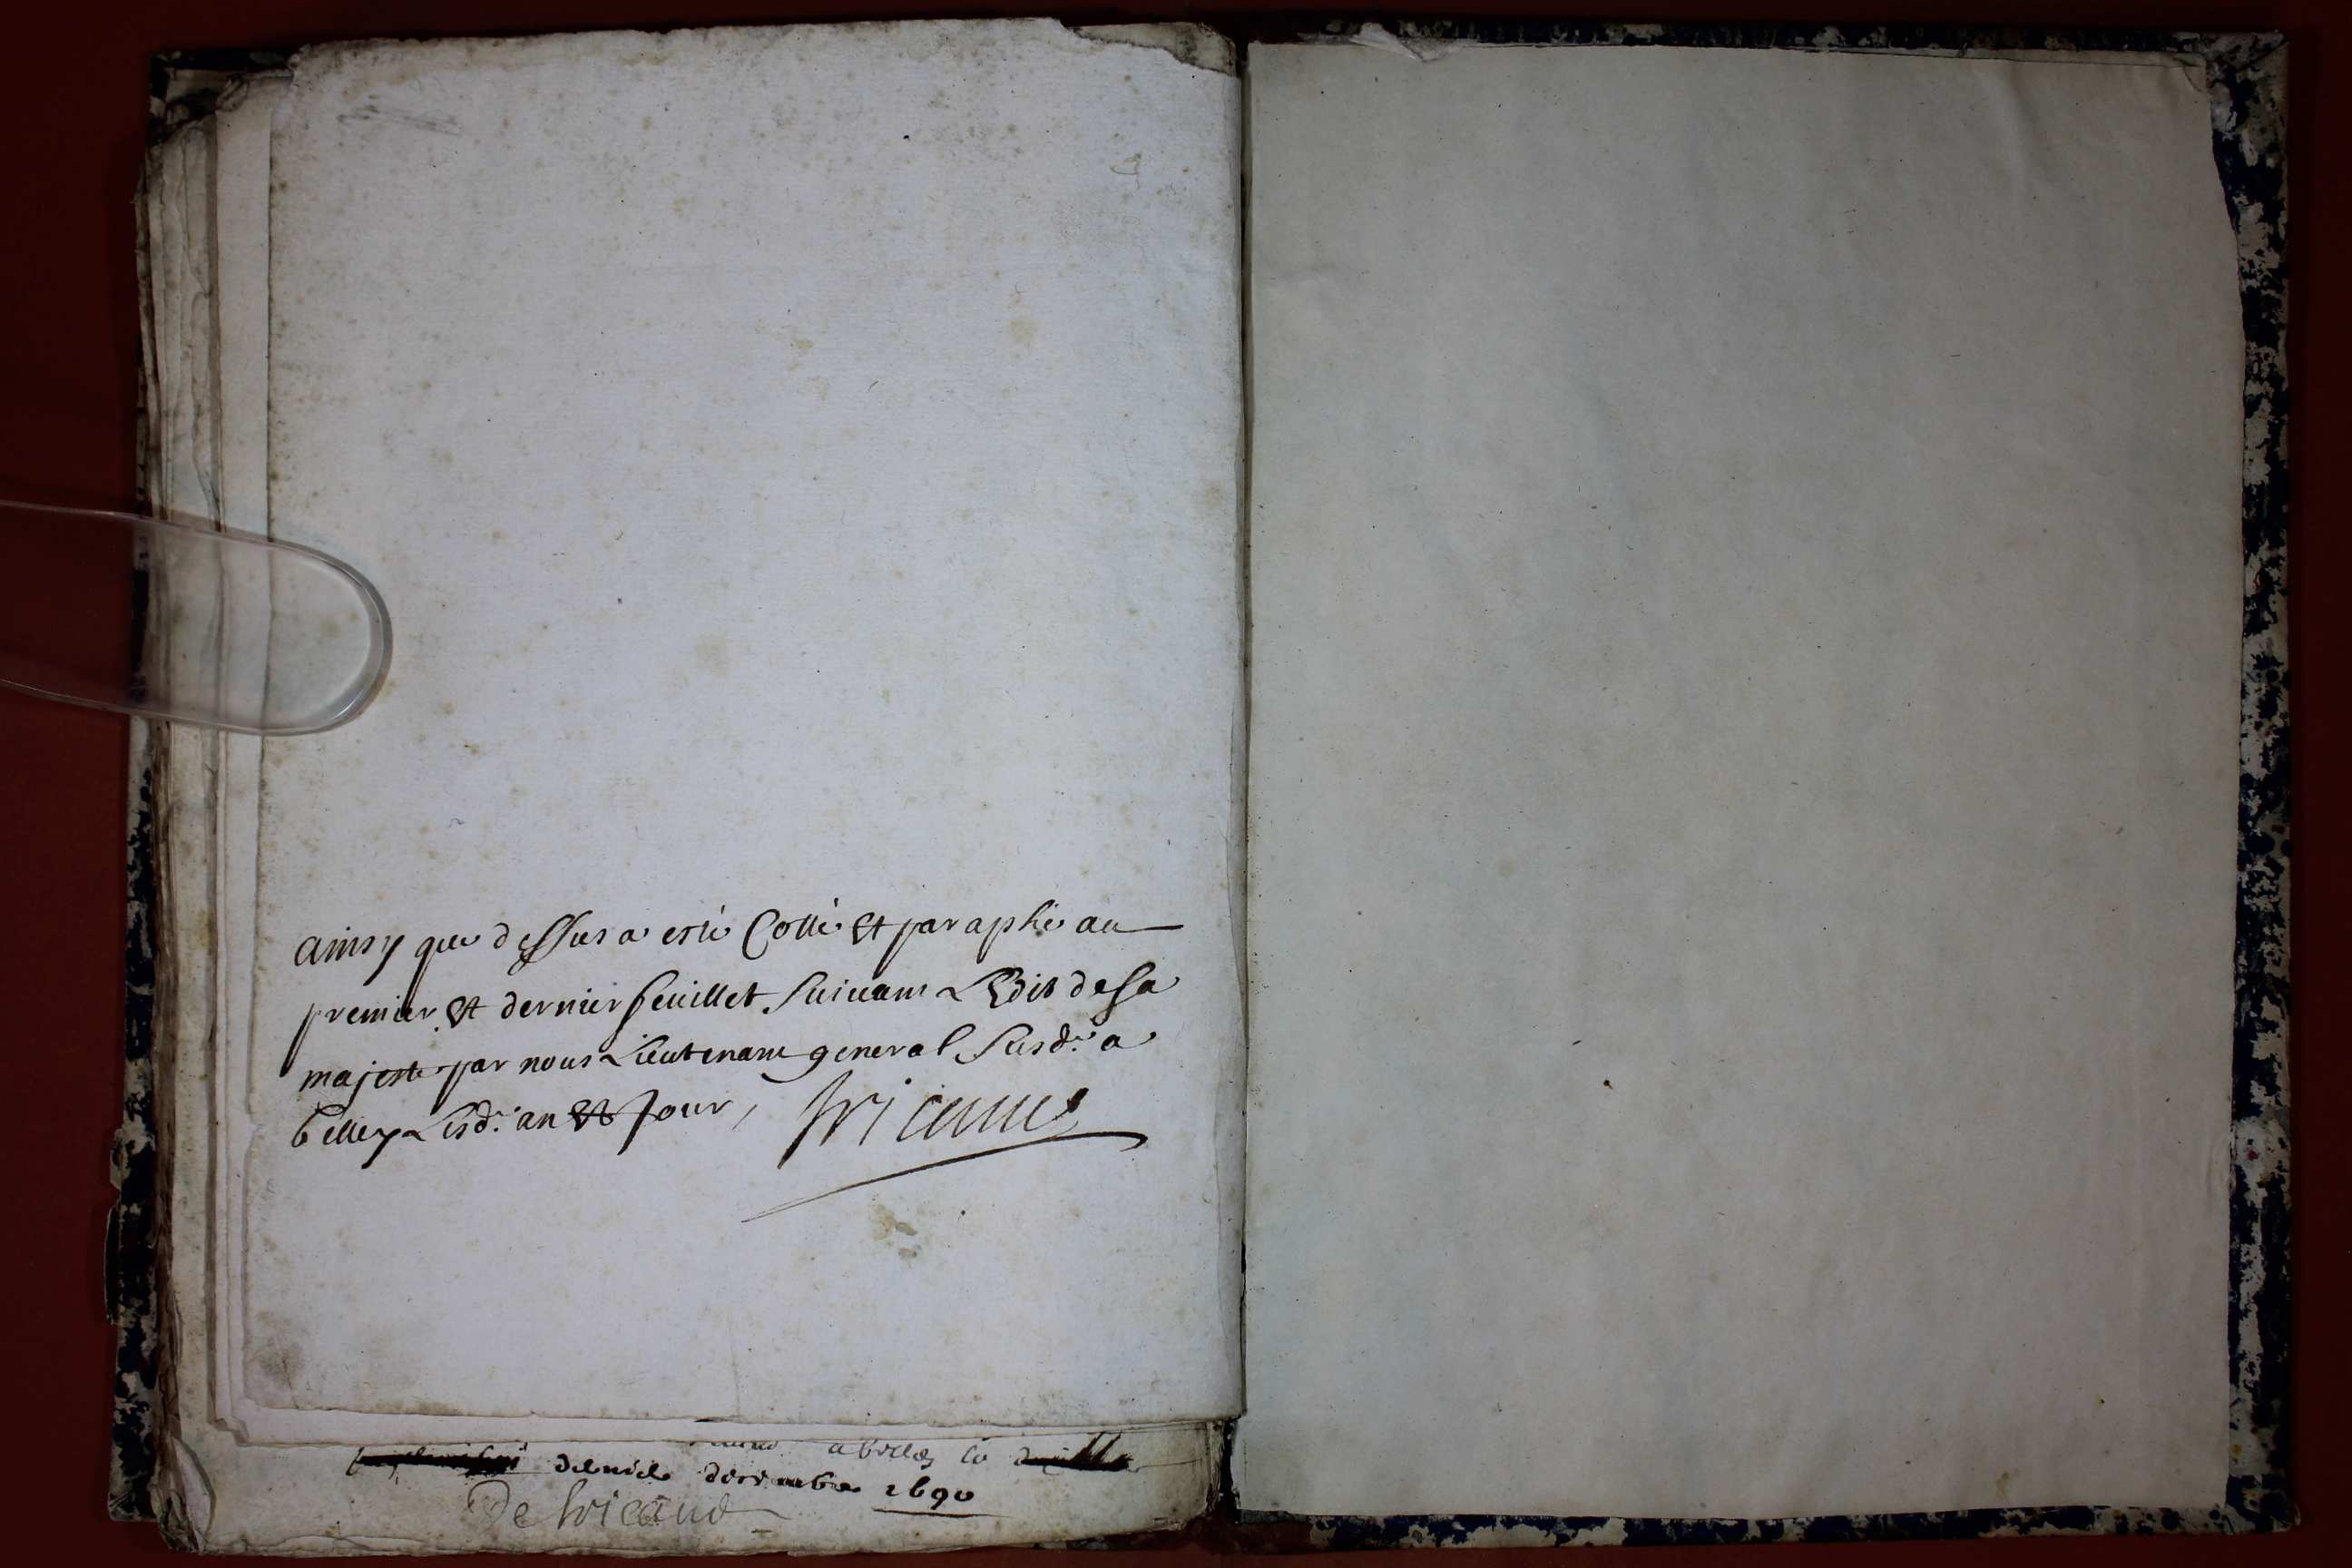 ainsy que dessus a esté Cotté Et paraphé au
premier Et dernier feuillet Suivant L'Edit de sa
majesté par nous Lieutenant general Susd.t a
belley Lesd.t an Et Jour,
a belley le
dernier decembre 1690
De